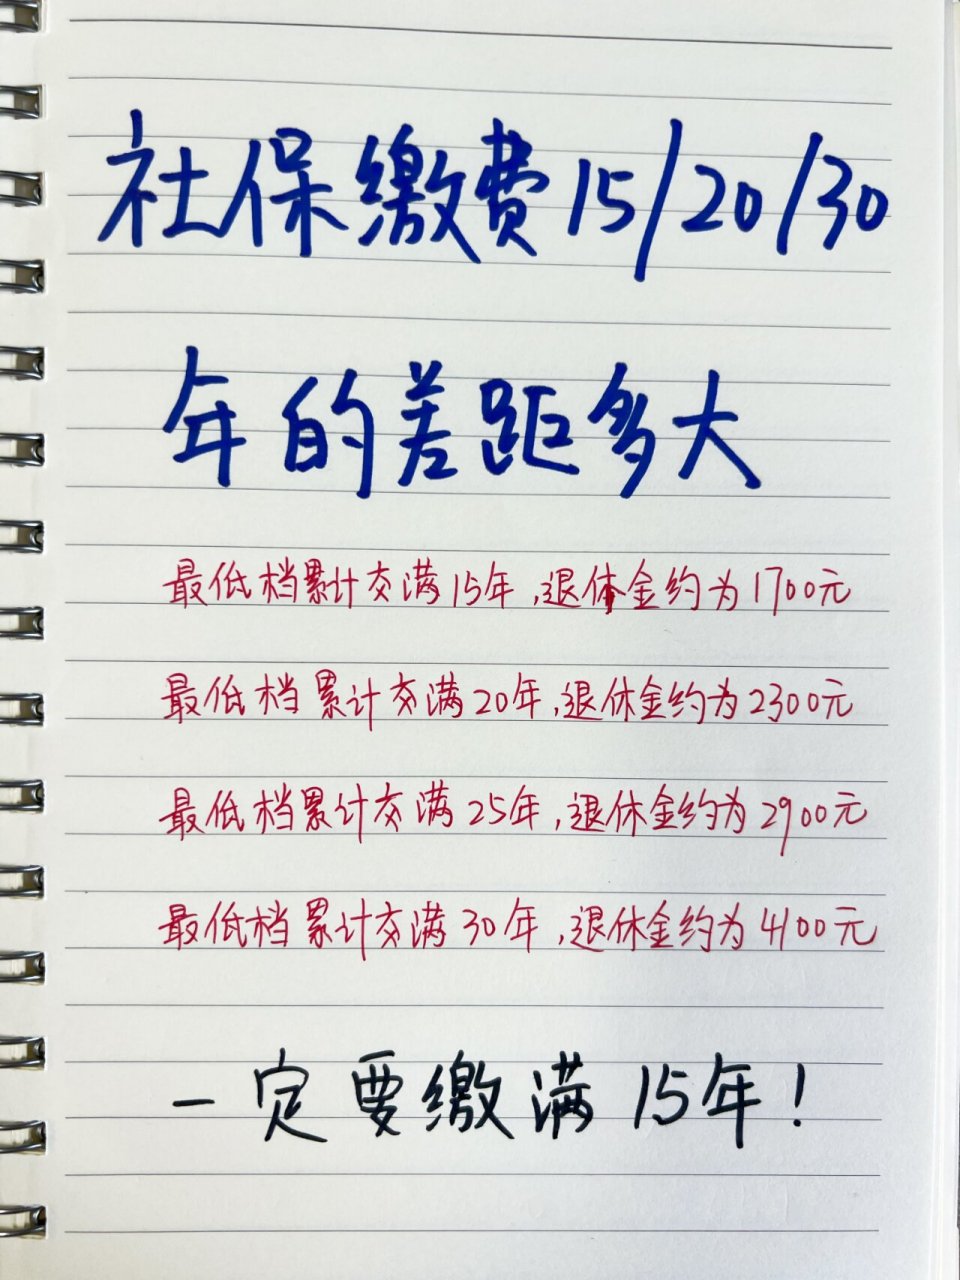 社保缴费15/20/30
年的差距多大
最低档累计交满15年,退休金约为1700元
最低档累计交满20年,退休金约为2300元
最低档累计交满25年,退休金约为2900元
最低档累计交满30年,退休金约为4100元
一定要缴满15年!